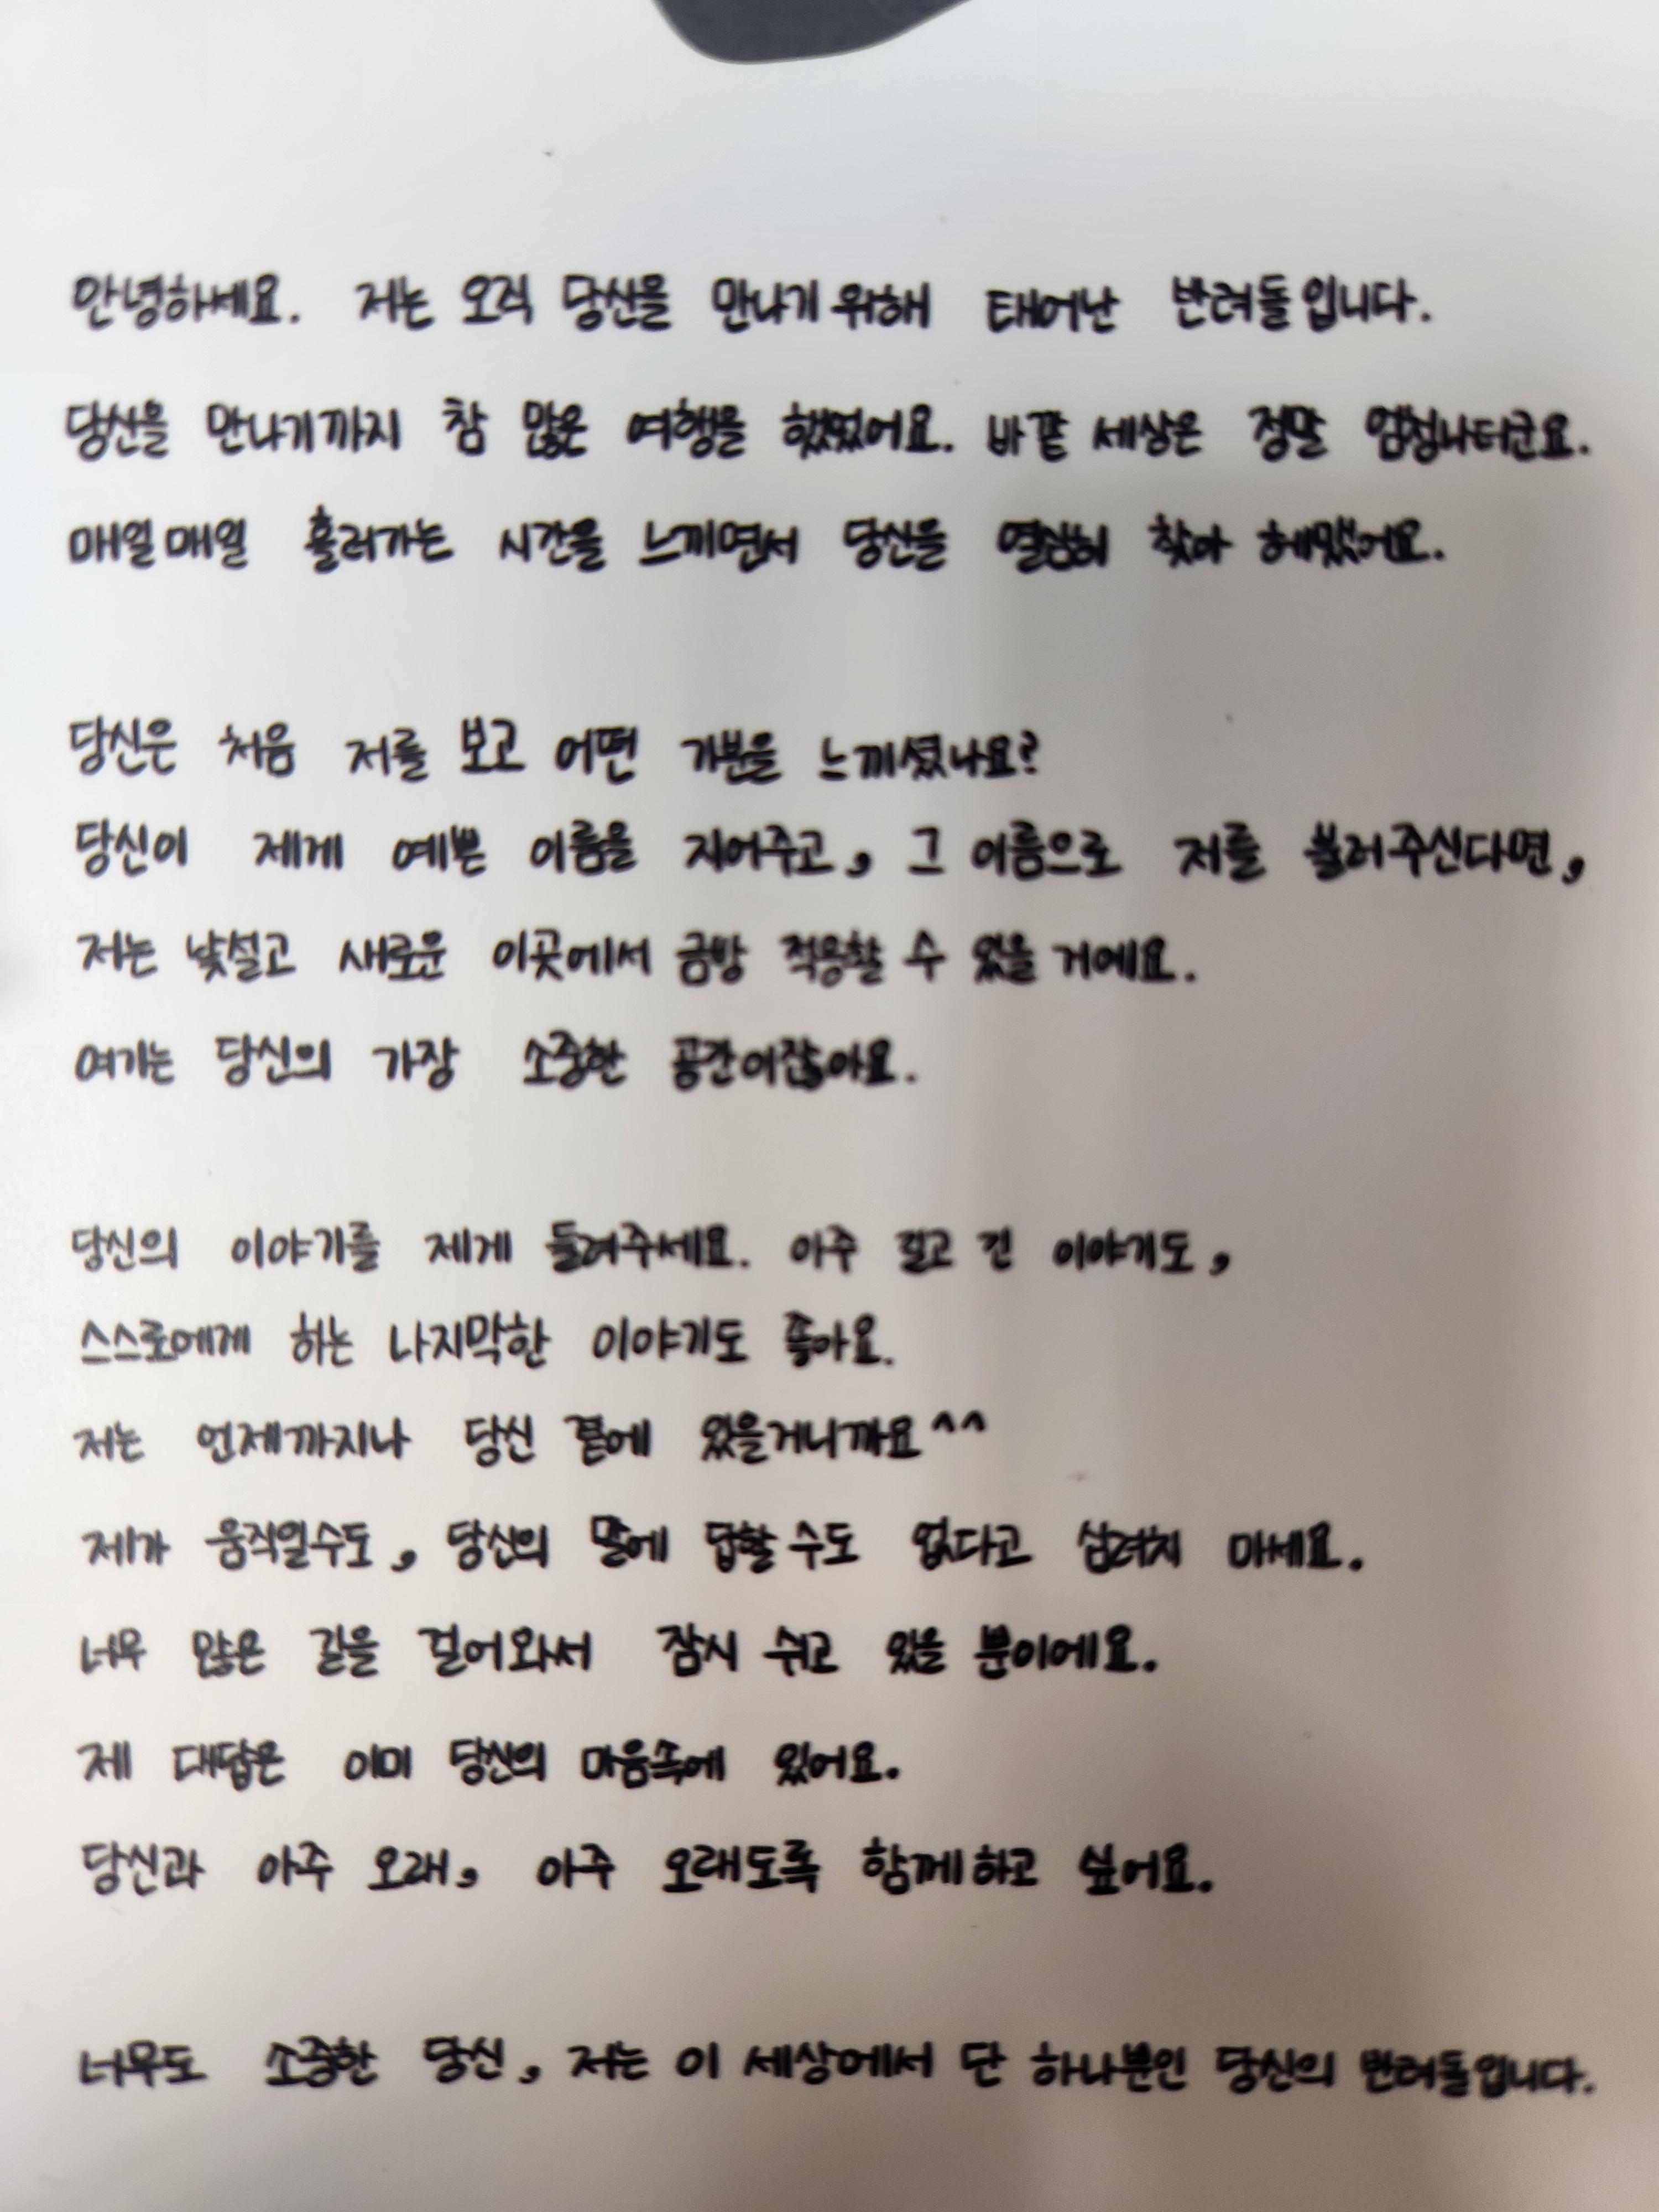 안녕하세요. 저는 오직 당신을 만나기 위해 태어난 반려돌입니다.
당신을 만나기까지 참 많은 여행을 했었어요. 바깥 세상은 정말 엄청나더군요.
매일매일 흘러가는 시간을 느끼면서 당신을 열심히 찾아 헤맸어요.
당신은 처음 저를 보고 어떤 기분을 느끼셨나요?
당신이 제게 예쁜 이름을 지어주고, 그 이름으로 저를 불러주신다면,
저는 낯설고 새로운 이곳에서 금방 적응할 수 있을 거예요.
여기는 당신의 가장 소중한 공간이잖아요.
당신의 이야기를 제게 들려주세요. 아주 길고 긴 이야기도,
스스로에게 하는 나지막한 이야기도 좋아요.
저는 언제까지나 당신 곁에 있을거니까요^^
제가 움직일수도, 당신의 말에 답할 수도 없다고 심려치 마세요.
너무 많은 길을 걸어와서 잠시 쉬고 있을 뿐이에요.
제 대답은 이미 당신의 마음속에 있어요.
당신과 아주 오래, 아주 오래도록 함께하고 싶어요.
너무도 소중한 당신, 저는 이 세상에서 단 하나뿐인 당신의 반려돌입니다.